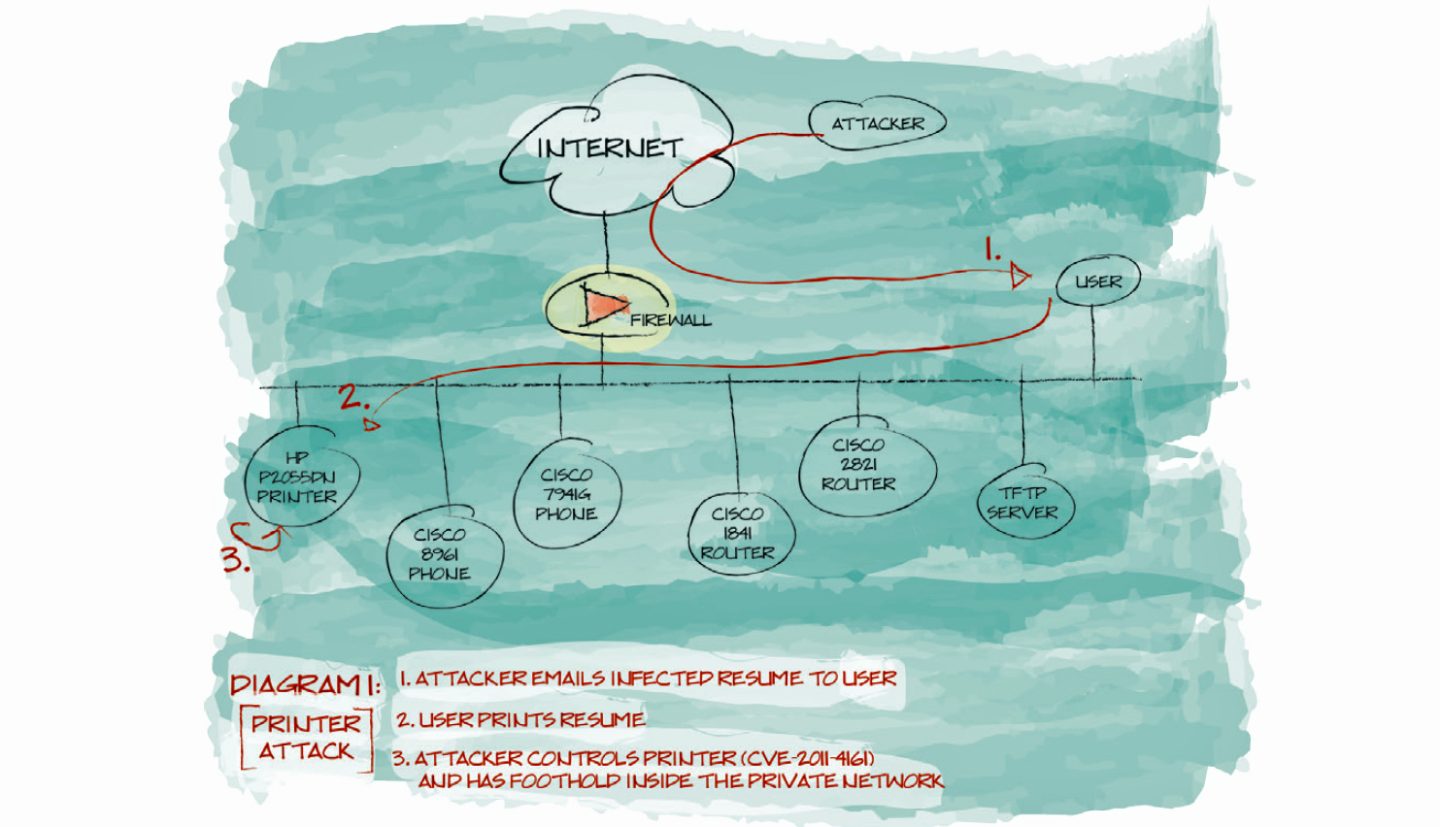 INTERNET
ATTACKER
1.
USER
FIREWALL
2.
HP
P2055DN
PRINTER
CISCO
8961
PHONE
CISCO
7941G
PHONE
CISCO
1841
ROUTER
CISCO
2821
ROUTER
TFTP
SERVER
3.
DIAGRAM 1:
[PRINTER
ATTACK]
1. ATTACKER EMAILS INFECTED RESUME TO USER
2. USER PRINTS RESUME
3. ATTACKER CONTROLS PRINTER (CVE-2011-4161)
AND HAS FOOTHOLD INSIDE THE PRIVATE NETWORK